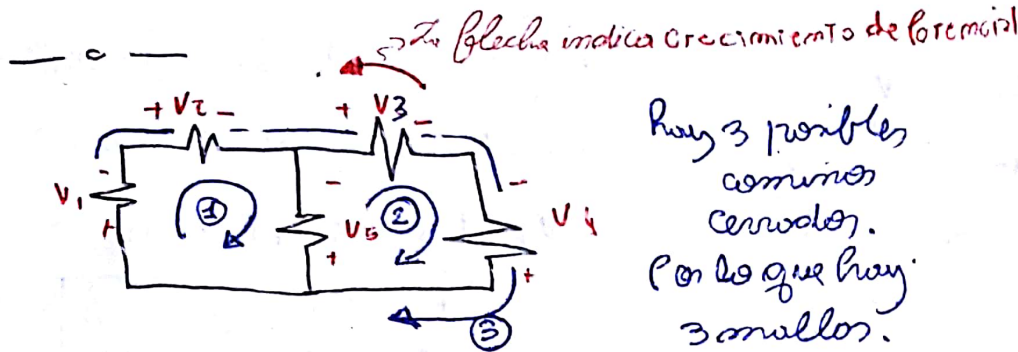 La flecha indica crecimiento de Potencial
+ V2 -
+ V3 -
hay 3 posibles
caminos
cerrados.
Por lo que hay
3 mallas.
-
V1
+
1
-
V5
+
2
-
V4
+
3